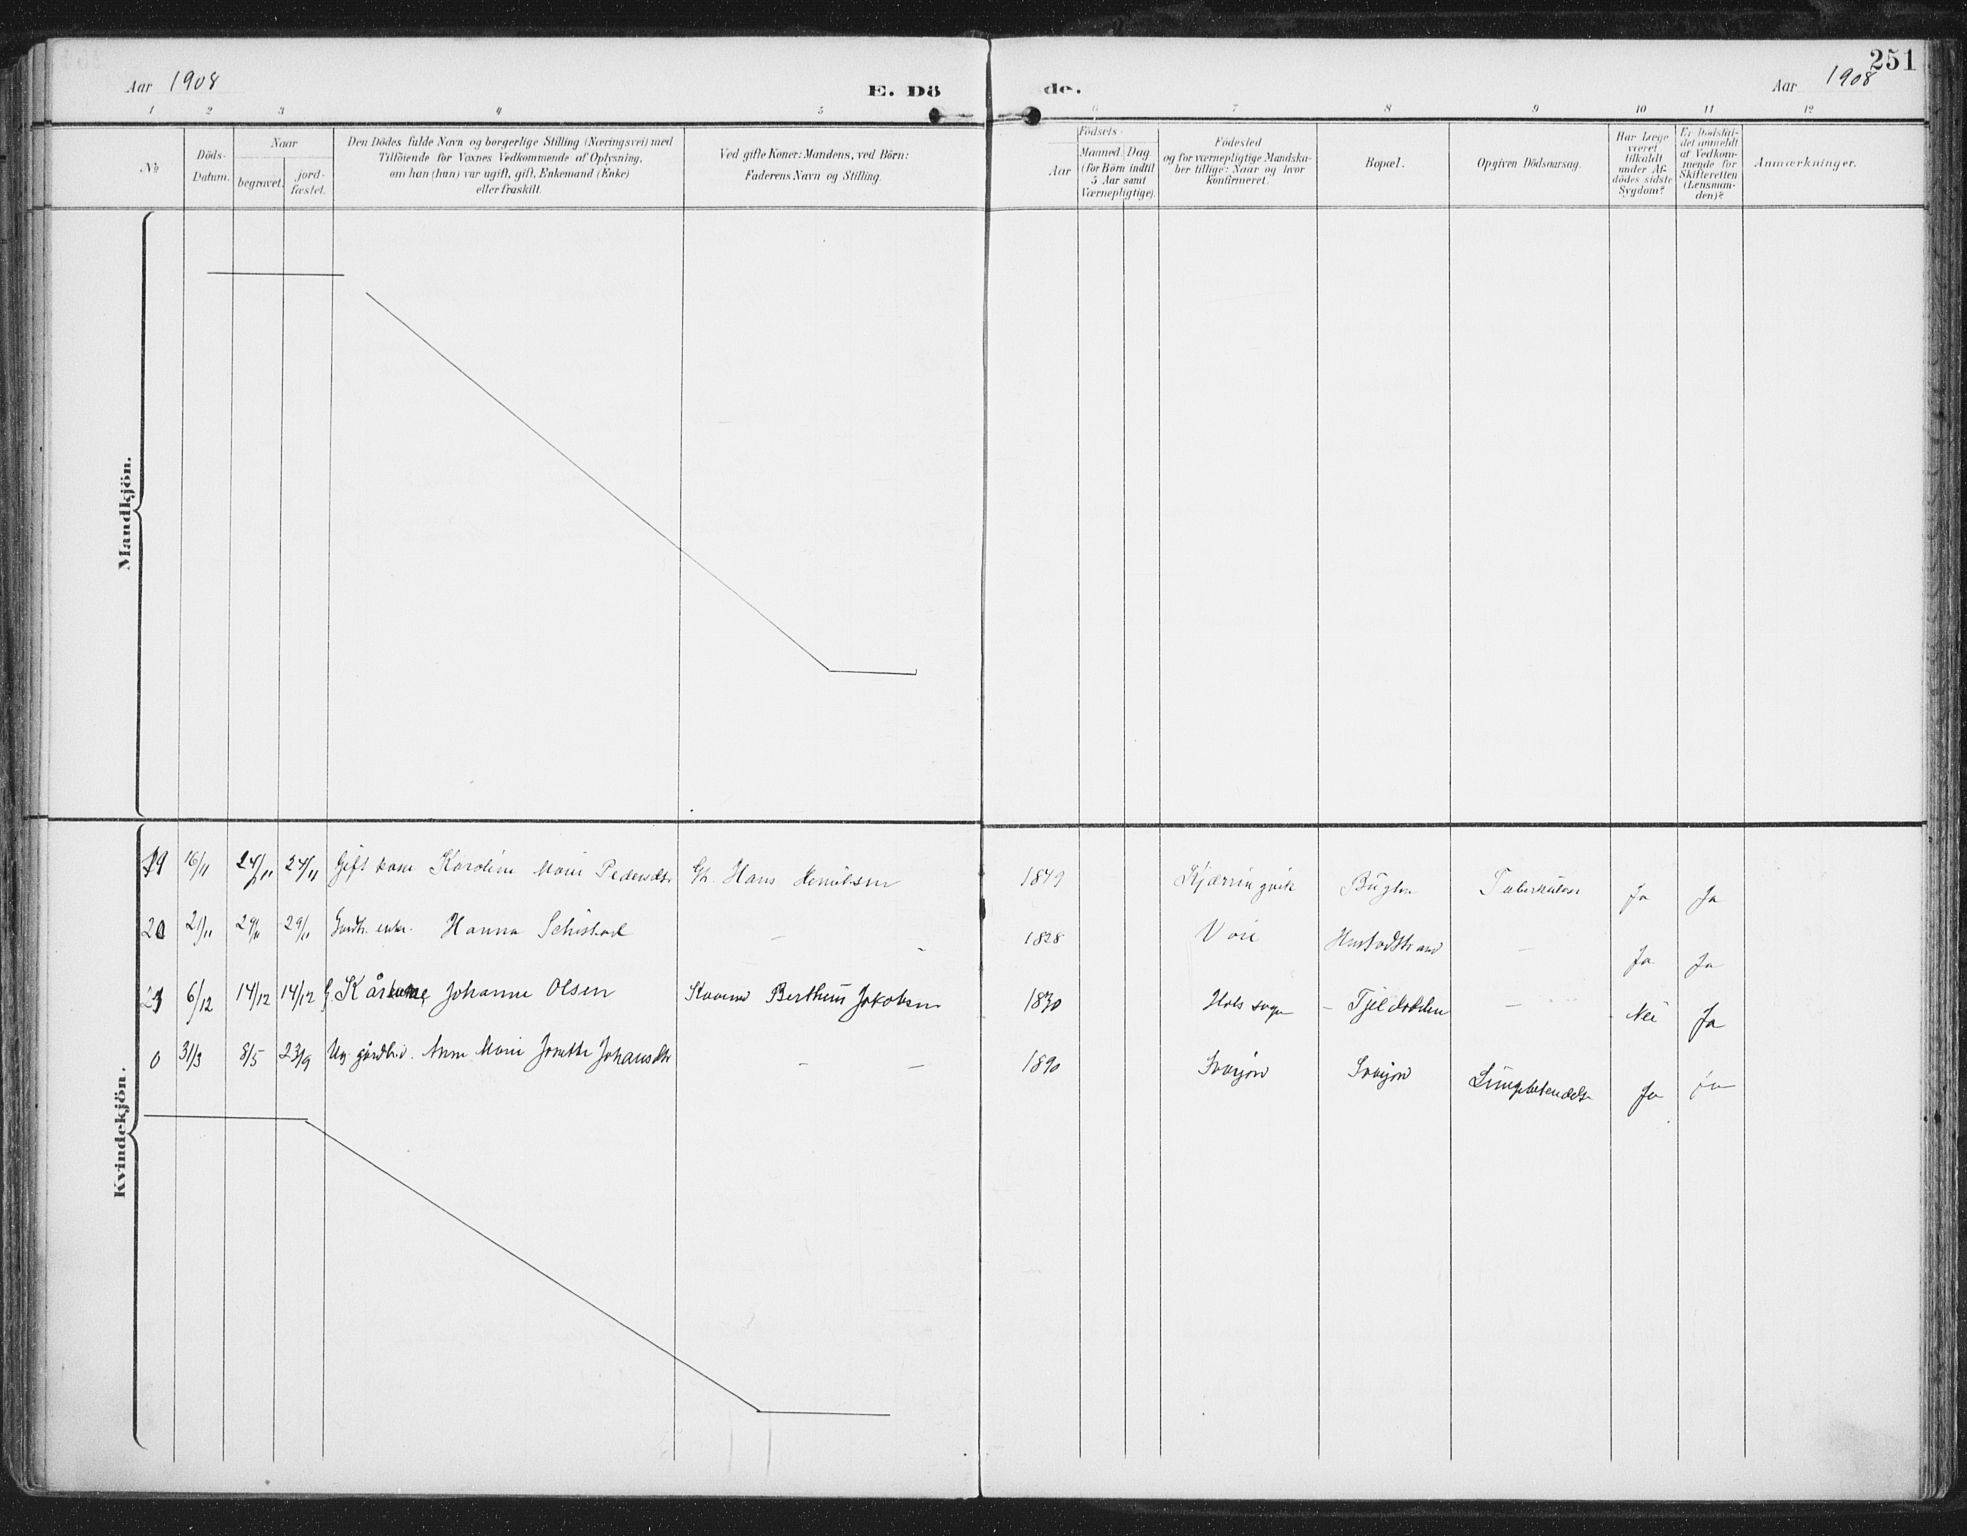 251
Aar 1908
E. Dö
de.
Aar 1908
1 2 3 4 5 6 7 8 9 10 11 12
No
Döds-
Datum.
Naar
begravet.
jord-
fæstet.
Den Dödes fulde Navn og borgerlige Stilling (Næringsvei) med
Tilföiende for Voxnes Vedkommende af Oplysning,
om han (hun) var ugift, gift, Enkemand (Enke)
eller fraskilt.
Ved gifte Koner: Mandens, ved Börn:
Faderens Navn og Stilling.
Födsels-
Aar
Maaned. Dag
(for Börn indtil
5 Aar samt
Værnepligtige).
Födested
og for værnepligtige Mandska-
ber tillige: Naar og hvor
konfirmeret.
Bopæl.
Opgiven Dödsaarsag.
Har Læge
været
tilkaldt
under Af-
dödes sidste
Sygdom?
Er Dödsfal-
det anmeldt
af Vedkom-
mende for
Skifteretten
(Lensman-
den)?
Anmærkninger.
Mandkjön.
Kvindekjön.
19 16/11 24/11 24/11 Gift kone Karoline Marie Pedersdtr Hans 1849 Kjærringvik Tuberkulose Ja Ja
20 21/11 29/11 29/11 enke Hanna 1828 – Ja Ja
21 6/12 14/12 14/12 Johanne Olsen Jakobsen 1830 Hols sogn – Tjeldodden – Nei Ja
0 31/3 8/5 23/9 Ug. Anna Marie Johansdtr – – 1890 Lungebetændelse Ja Ja